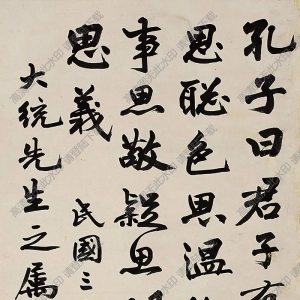 孔子曰君子有
思聪色思温
事思敬疑思
思義 民國三
大统先生之属